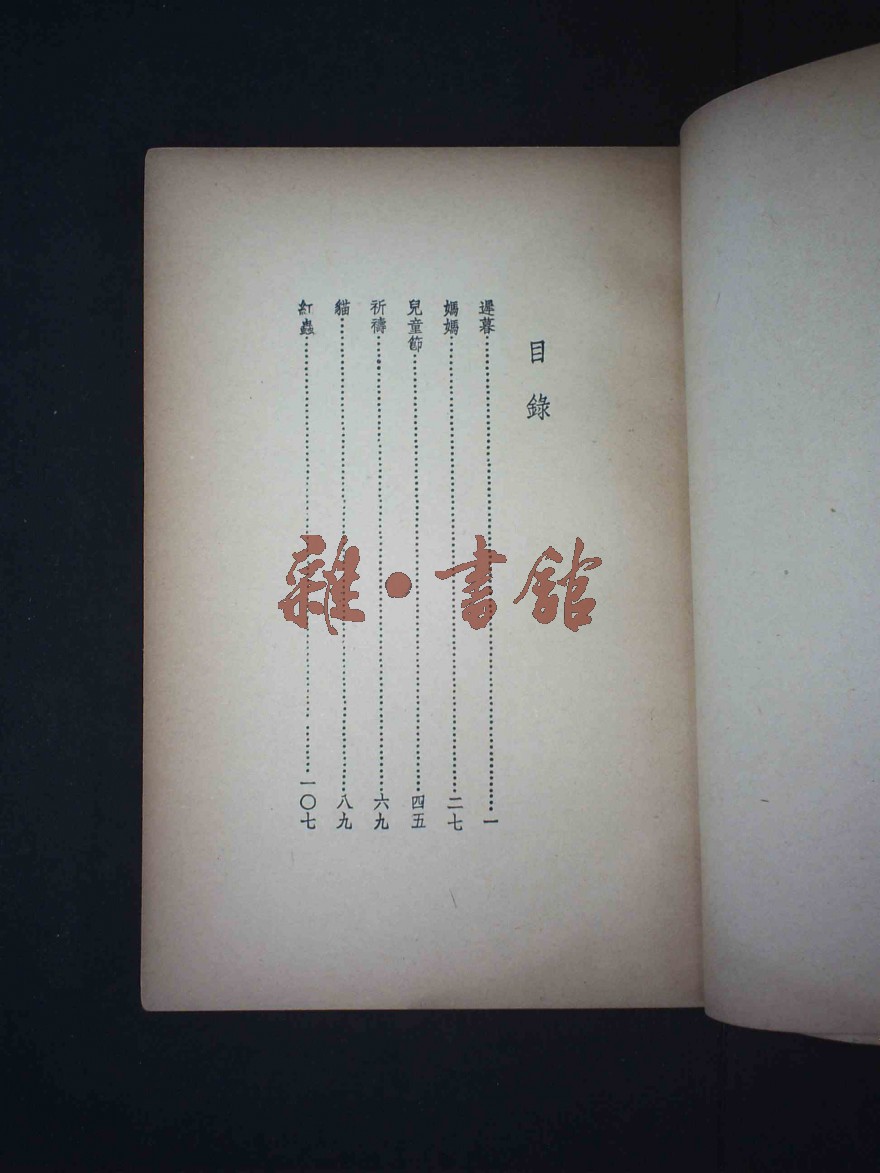 目錄
遲暮⋯⋯⋯⋯⋯⋯一
媽媽⋯⋯⋯⋯⋯⋯二七
兒童節⋯⋯⋯⋯⋯⋯四五
祈禱⋯⋯⋯⋯⋯⋯六九
貓⋯⋯⋯⋯⋯⋯八九
紅蟲⋯⋯⋯⋯⋯⋯一〇七
雜•書館